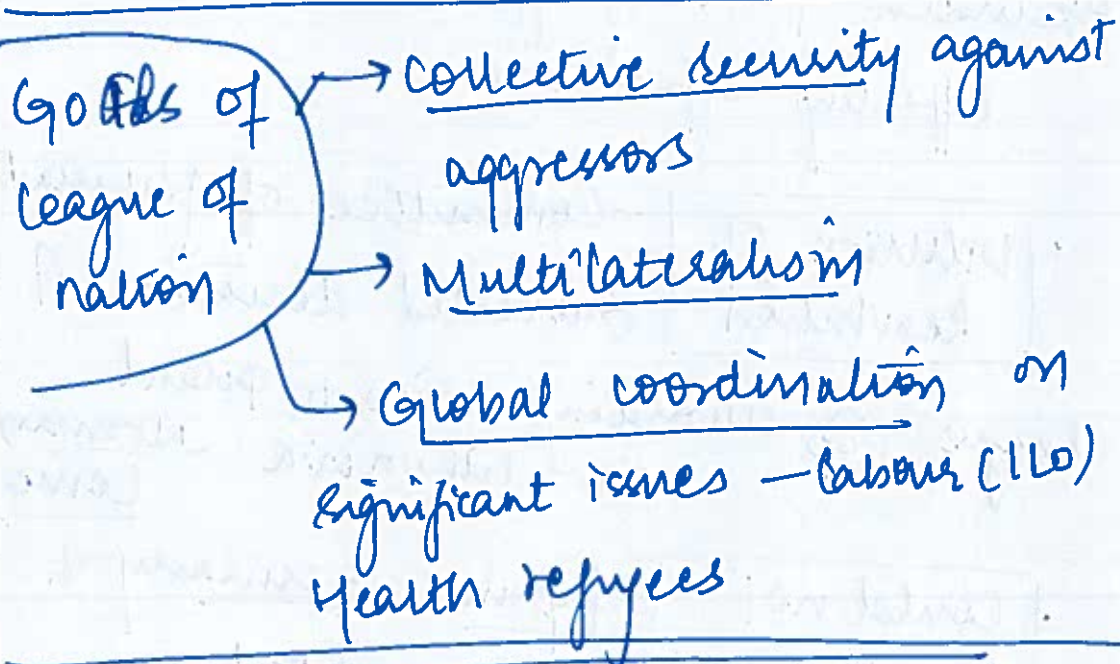 Goals of
League of
nation
→ Collective security against
aggressors
→ Multilateralism
→ Global coordination on
significant issues — labour (ILO)
Health refugees